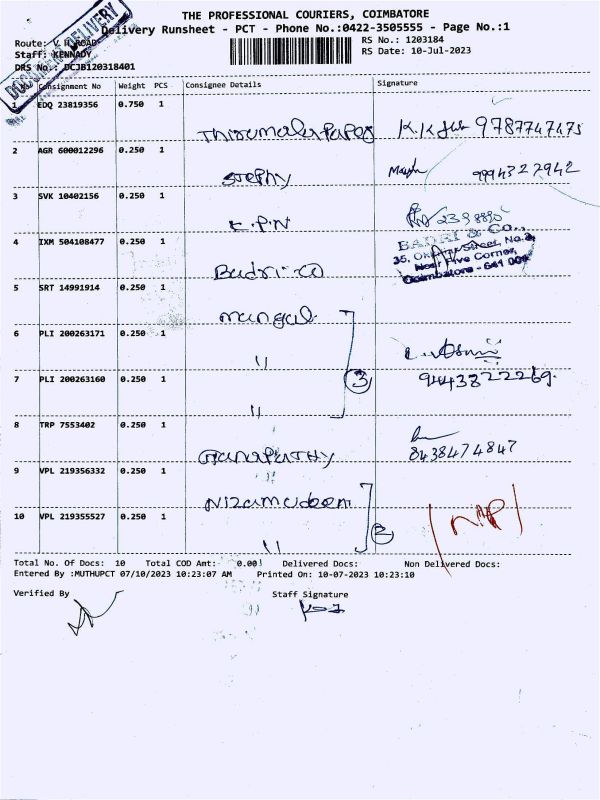 THE PROFESSIONAL COURIERS, COIMBATORE
Delivery Runsheet - PCT - Phone No.:0422-3505555 - Page No.:1
Route: V H ROAD
Staff: KENNADY
DRS No.: DCJB120318401
RS No.: 1203184
RS Date: 10-Jul-2023
DOCUMENT DELIVERY
Consignment No Weight PCS Consignee Details Signature
1 EDQ 23819356 0.750 1
9787747475
2 AGR 600012296 0.250 1
9994327942
3 SVK 10402156 0.250 1
K.P.N
4 IXM 504108477 0.250 1
Badri-co
BADRI & Co.,
Near Five Corner,
Coimbatore - 641 001
5 SRT 14991914 0.250 1
mangal
6 PLI 200263171 0.250 1
"
7 PLI 200263160 0.250 1
"
3
9443822269.
8 TRP 7553402 0.250 1
GANAPATHY
8438474847
9 VPL 219356332 0.250 1
Nizamudeen
10 VPL 219355527 0.250 1
"
2
Total No. Of Docs: 10 Total COD Amt: 0.00 Delivered Docs: Non Delivered Docs:
Entered By :MUTHUPCT 07/10/2023 10:23:07 AM Printed On: 10-07-2023 10:23:10
Verified By Staff Signature